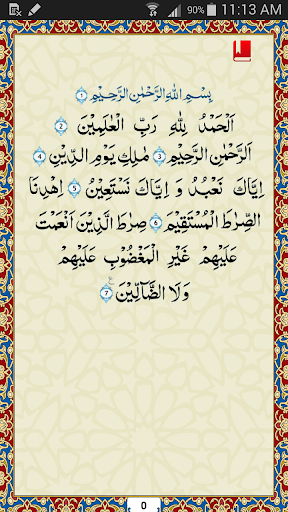 90% 11:13 AM
بِسْمِ اللهِ الرَّحْمٰنِ الرَّحِيْمِ ۱
اَلْحَمْدُ لِلّٰهِ رَبِّ الْعٰلَمِيْنَ ۲
الرَّحْمٰنِ الرَّحِيْمِ ۳ مٰلِكِ يَوْمِ الدِّيْنِ ۴
اِيَّاكَ نَعْبُدُ وَ اِيَّاكَ نَسْتَعِيْنُ ۵ اِهْدِنَا
الصِّرَاطَ الْمُسْتَقِيْمَ ۶ صِرَاطَ الَّذِيْنَ اَنْعَمْتَ
عَلَيْهِمْ غَيْرِ الْمَغْضُوْبِ عَلَيْهِمْ
وَلَا الضَّآلِّيْنَ ۷
0